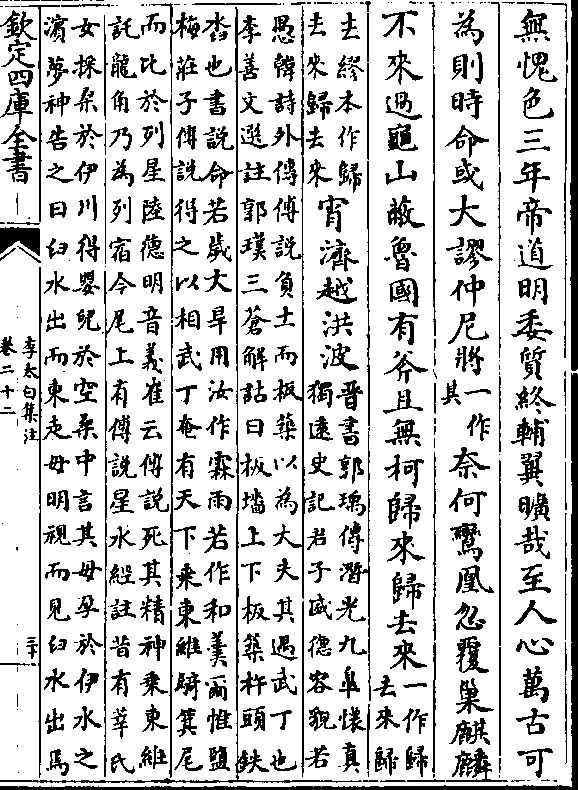 無愧色三年帝道明委質終輔翼曠哉至人心萬古可
為則時命或大謬仲尼將一作其奈何鸞鳳忽覆巢麒麟
不來過龜山蔽魯國有斧且無柯歸來歸去來一作歸去來歸
去繆本作歸去來歸去來宵濟越洪波晉書郭瑀傳潛光九臯懷真獨遠史記君子盛德容貌若
愚韓詩外傳傅說負土而板築以為大夫其遇武丁也
李善文選註郭璞三蒼解詁曰板墻上下板築杵頭鉄
沓也書說命若歲大旱用汝作霖雨若作和羹爾惟鹽
梅莊子傅說得之以相武丁奄有天下乘東維騎箕尾
而比於列星陸德明音義崔云傅說死其精神乘東維
託龍角乃為列宿今尾上有傅說星水經註昔有莘氏
女採桑於伊川得嬰兒於空桑中言其母孕於伊水之
濵夢神告之曰臼水出而東走母明視而見臼水出焉
欽定四庫全書
李太白集注
卷二十二
三十